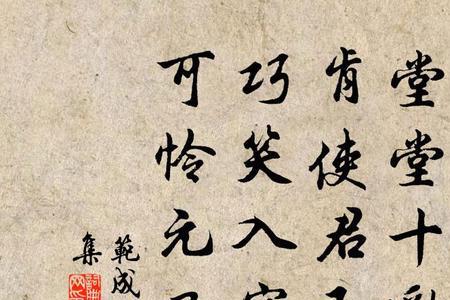 堂堂十
肯使君
巧笑入
可怜元
範成
集